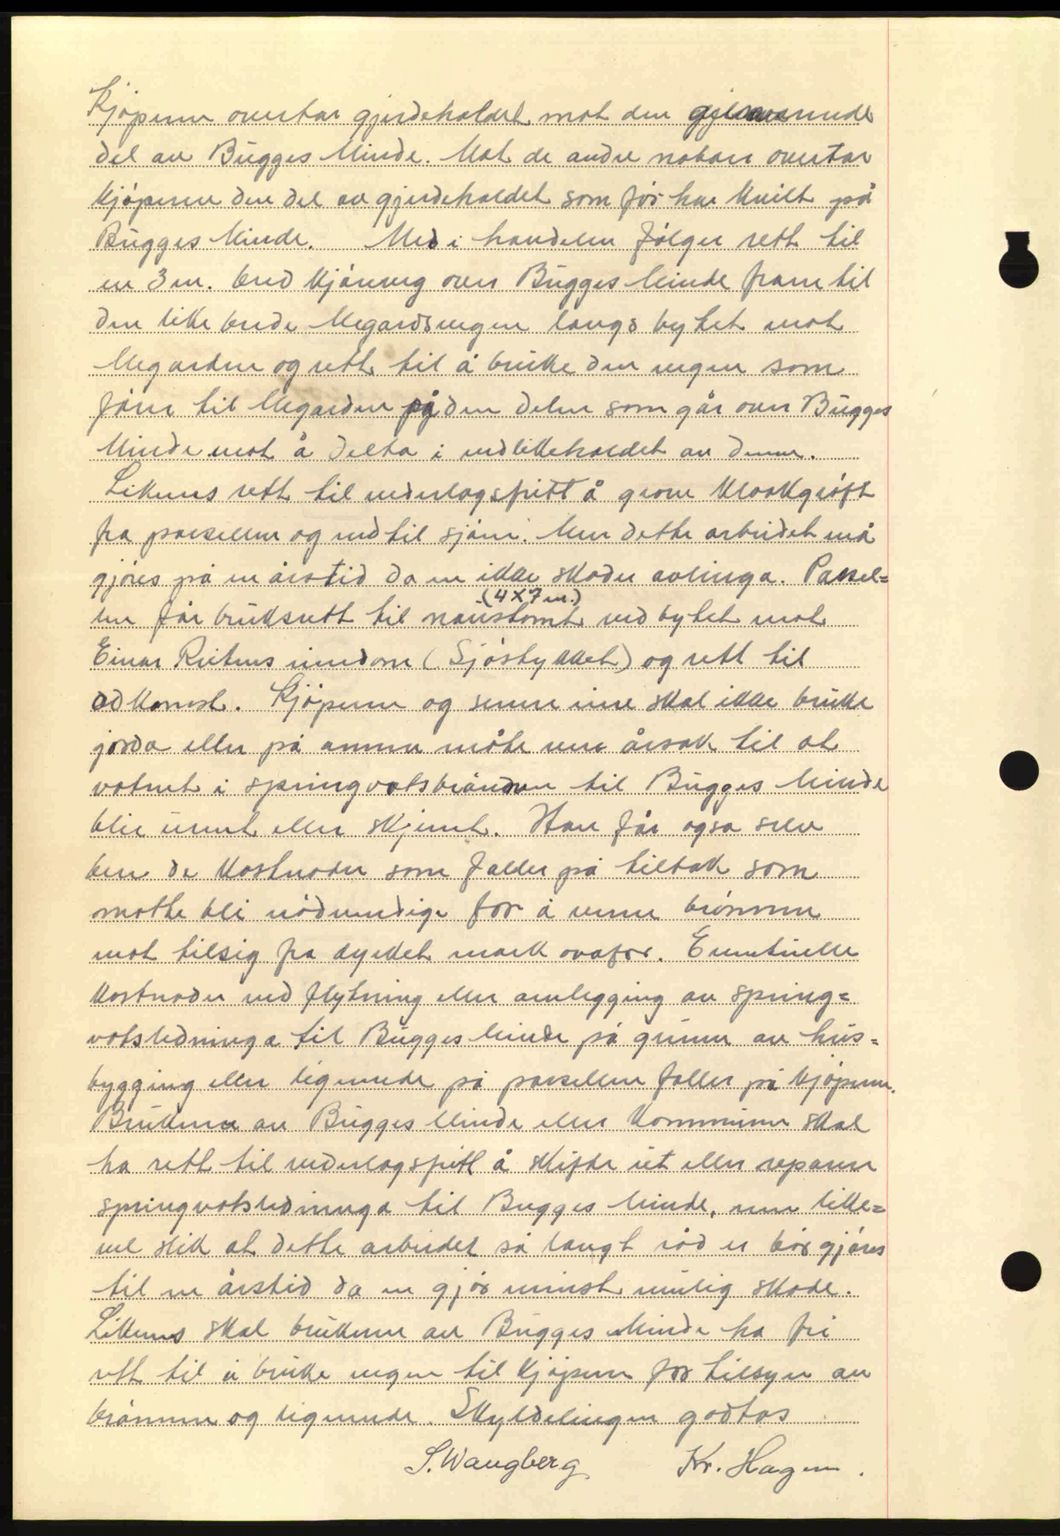 Kjøperen overtar gjerdeholdet mot den gjenværende
del av Bugges Minde. Mot de andre naboer overtar
kjøperen den del av gjerdeholdet som før har kvilt på
Bugges Minde. Med i handelen følger rett til
en 3 m. bred kjøreveg over Bugges Minde fram til
den like brede Megardsvegen langs bytet mot
Megarden og rett til å bruke den vegen som
fører til Megarden på den delen som går over Bugges
Minde mot å delta i vedlikeholdet av denne.
Likeens rett til vederlagsfritt å grave kloakkgrøft
fra parsellen og ned til sjøen. Men dette arbeidet må
gjøres på en årstid da en ikke skader avlinga. Parsel=
len får bruksrett til naustomt (4 x 7 m.) ved bytet mot
Einar Reitens eiendom (Sjøstykket) og rett til
adkomst. Kjøperen og senere eiere skal ikke bruke
jorda eller på annen måte være årsak til at
vatnet i springvatsbrønnen til Bugges Minde
blir urent eller skjemt. Han får også selv
bere de kostnader som faller på tiltak som
måtte bli nødvendige for å verne brønnen
mot tilsig fra dyrket mark ovafor. Eventuelle
kostnader ved flytning eller omlegging av spring=
vatsledninga til Bugges Minde på grunn av hus=
bygging eller lignende på parsellen faller på kjøperen.
Brukeren av Bugges Minde eller kommunen skal
ha rett til vederlagsfritt å skifte ut eller reparere
springvatsledninga til Bugges Minde, men like=
vel slik at dette arbeidet så langt råd er bør gjøres
til en årstid da en gjør minst mulig skade.
Likeens skal brukeren av Bugges Minde ha fri
rett til å bruke vegen til kjøperen for tilsyn av
brønnen og lignende. Skylddelingen godtas
S. Waugberg Kr. Hagen.